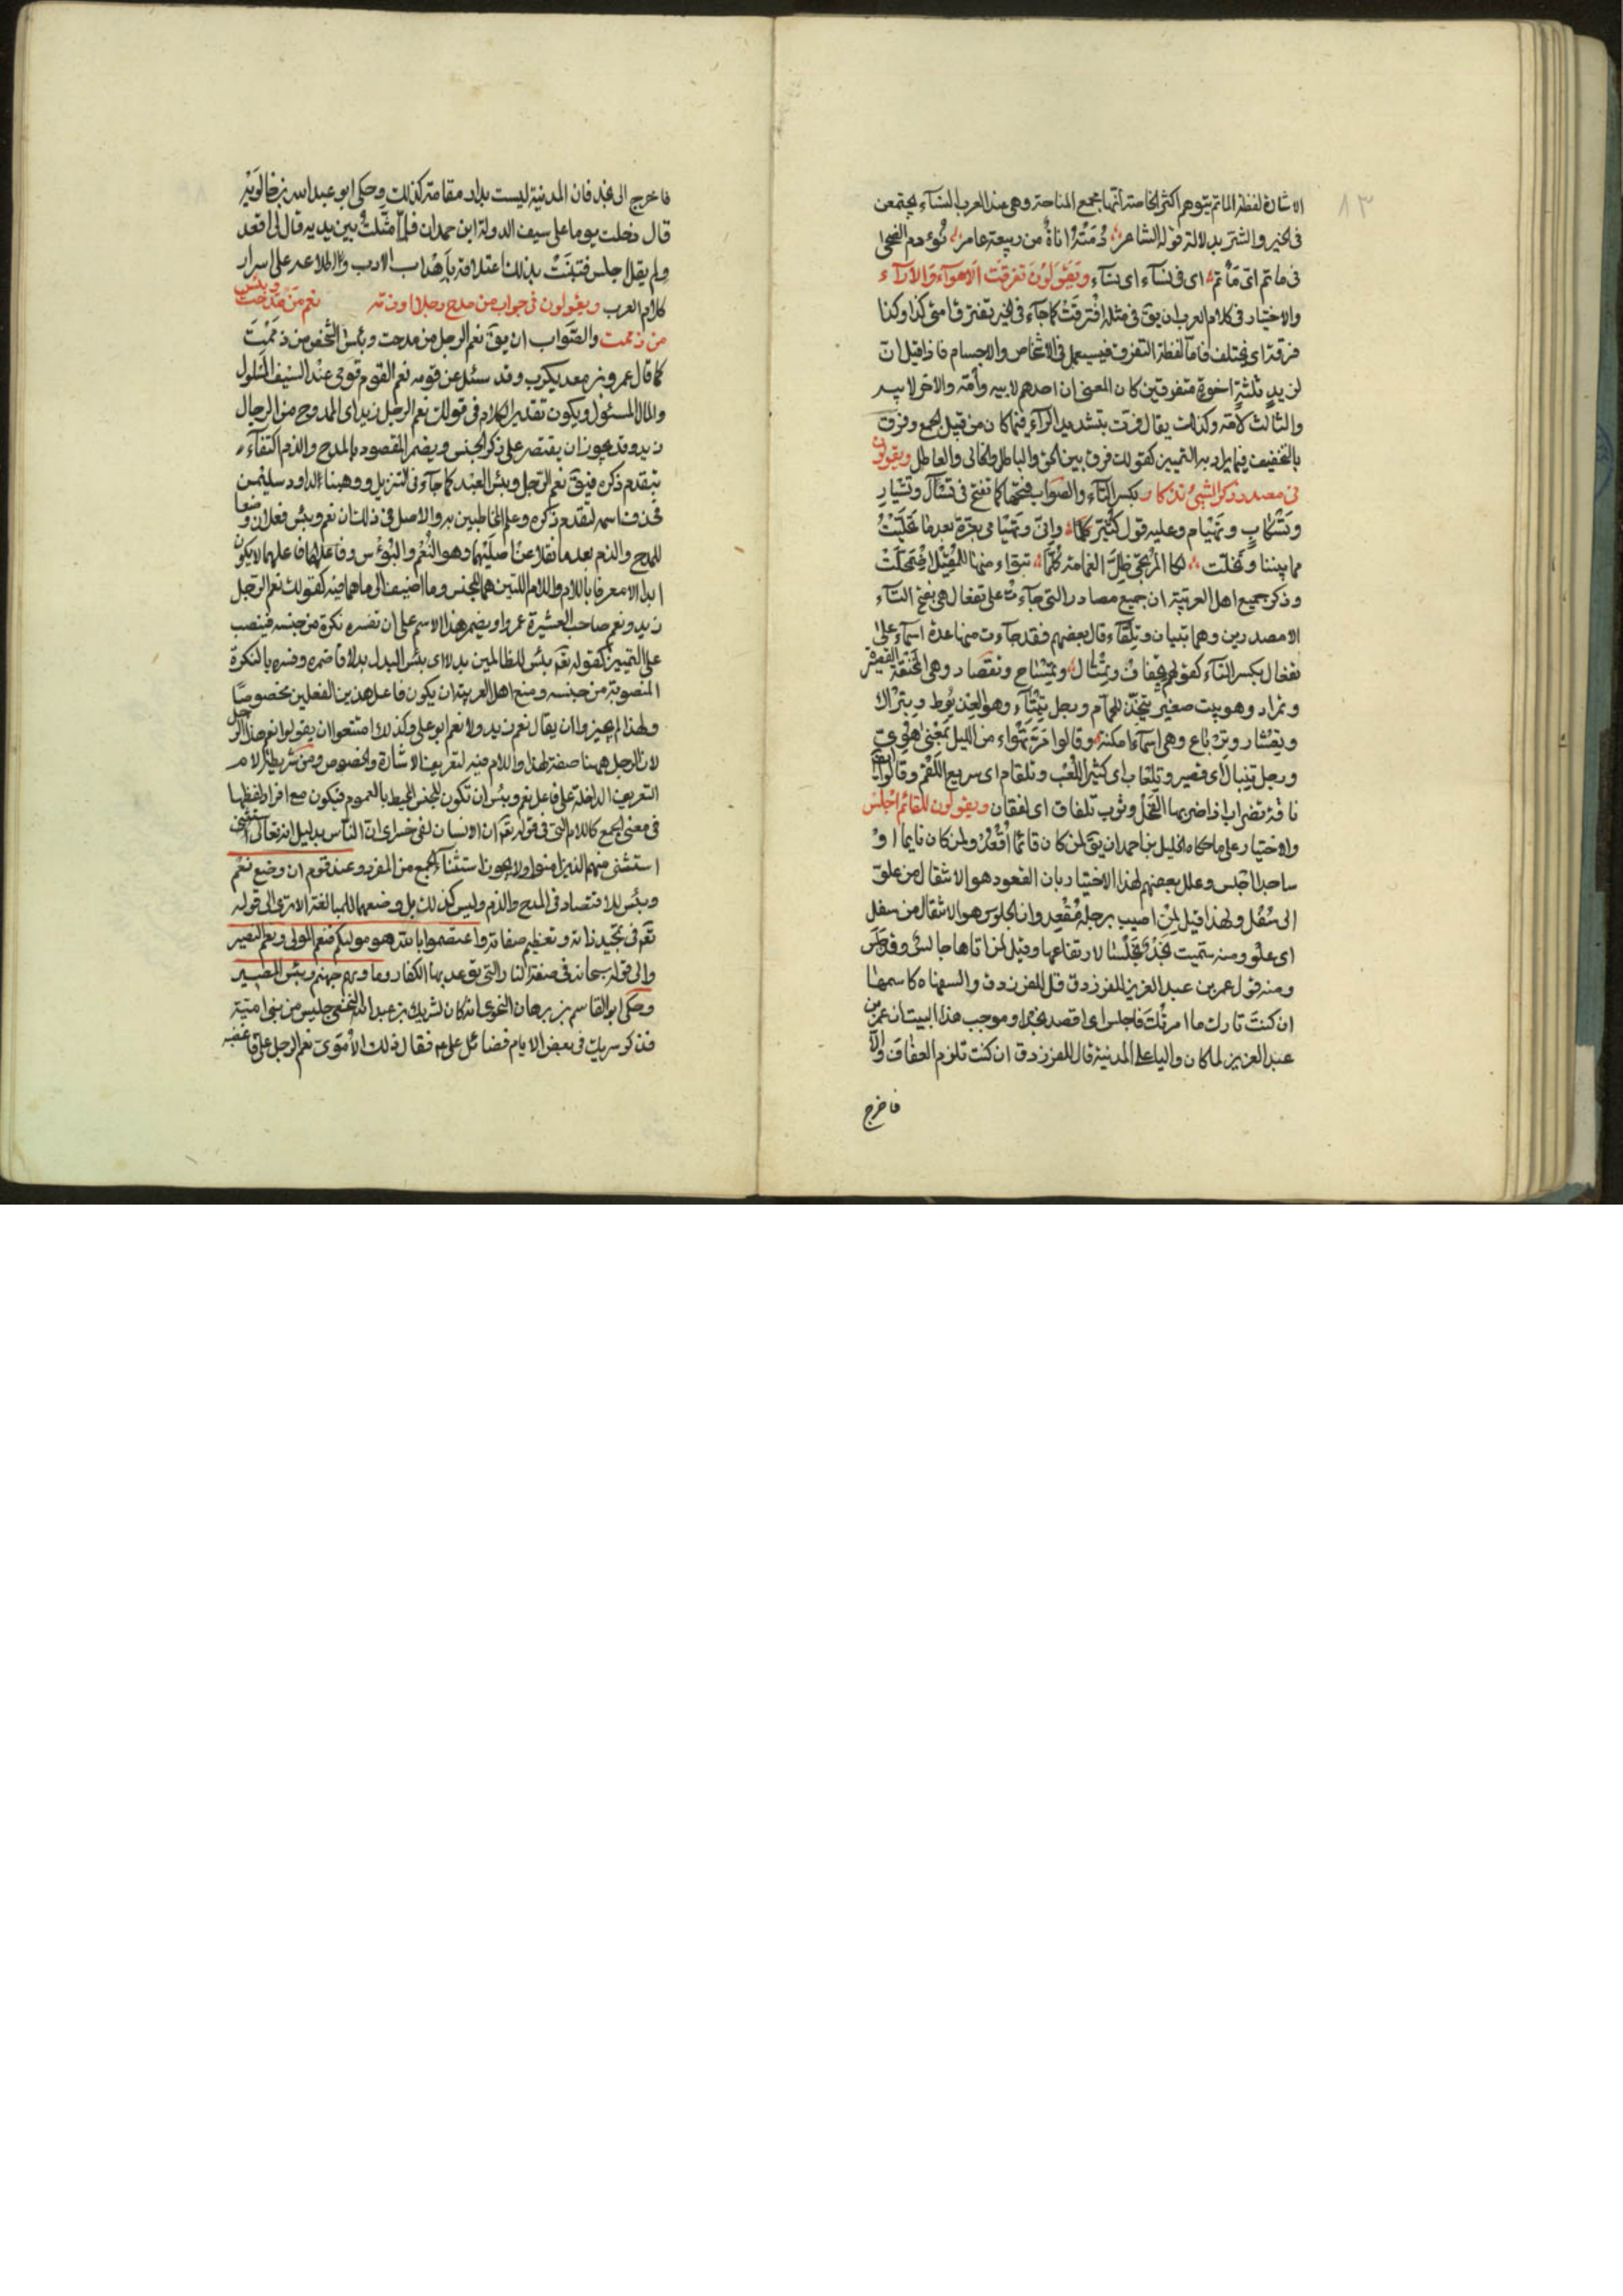 ٨٣
الاشارة لفظة الماتم يتوهم اكثر الخاصة انها مجمع المناحة وهي عند العرب النساء يجتمعن
في الخير والشر بدلالة قول الشاعر رمته اناة من ربيعة عامر نؤوم الضحى
في ماتم اي مأتم اى فى نساء اى نساء ويقولون تفرقت الاهواء والاراء
والاختيار فى كلام العرب ان يق فى مثله افترقت كما جآء فى الخبر تفترق امتى كذا وكذا
فرقة اى تختلف فاما لفظة التفرق فيستعمل فى الاشخاص والاجسام فاذا قيل ان
لزيد ثلثة اخوة متفرقين كان المعنى ان احدهم لابيه وامه والاخر لابيه
والثالث لامه وكذلك يقال فرّق بتشديد الرآء فيما كان من قبيل الجمع وفرق
بالتخفيف فيما يراد به التمييز كقولك فرق بين الحق والباطل والحالى والعاطل ويقولون
فى مصدر ذكر الشئ تذكار بكسر التآء والصواب فتحها كما تفتح فى تسآل وتسيار
وتسكاب وتهيام وعليه قول كثير وانى وتهيامى بعزة بعدما تخليت
مما بيننا وتخلت لكا لمرتجى ظل الغمامة كلما تبوّاء منها للمقيل اضمحلت
وذكر جميع اهل العربية ان جميع مصادر التى جآءت على تفعال هى بفتح التآء
الا مصدرين وهما تبيان وتلقاء وقال بعضهم فقد جاءت منها عدة اسمآء على
تفعال بكسر التآء كقولهم تجفاف وتمثال وتمساح وتقصار وهى المخنقة القصيرة
وتمراد وهو بيت صغير يتخذ للحمام ورجل تيتآء وهو العذيوط وتبراك
وتعشار وترباع وهى اسمآء امكنة وقالوا مرّ تهواء من الليل بمعنى هوى
ورجل تنبال اى قصير وتلعاب اى كثير اللعب وتلقام اى سريع اللقم وقالوا
ناقة تضراب اذا ضربها الفحل وثوب تلفاق اى لفقان ويقولون للقائم اجلس
والاختيار على ما حكاه الخليل بن احمد ان يق لمن كان قائما اقعد ولمن كان نايما او
ساجدا اجلس وعلل بعضهم لهذا الاختيار بان القعود هو الانتقال من علو
الى سفل ولهذا قيل لمن اصيب برجله مقعد وان الجلوس هو الانتقال من سفل
اى علو ومنه سميت نجد جلسا لارتفاعها وقيل لمن اتاها جالس وقد جلس
ومنه قول عمر بن عبد العزيز للفرزدق قل للفرزدق والسفاهة كاسمها
ان كنت تارك ما امرتك فاجلس اى اقصد نجدا وموجب هذا البيت ان عمر بن
عبد العزيز لما كان واليا على المدينة قال للفرزدق ان كنت تلزم العفاف والا
فاخرج
فاخرج الى نجد فان المدينة ليست بدار مقامة كذلك وحكى ابو عبد الله بن خالويه
قال دخلت يوما على سيف الدولة ابن حمدان فلما مثلت بين يديه قال لى اقعد
ولم يقل اجلس فتبينت بذلك اعتلاقه باهداب الادب واطلاعه على اسرار
كلام العرب ويقولون فى جواب من مدح رجلا او ذمه نعم من مدحت وبئس
من ذممت والصواب ان يق نعم الرجل من مدحت وبئس الشخص من ذممت
كما قال عمرو بن معديكرب وقد سئل عن قومه نعم القوم قومى عند السيف المسلول
والمال المسئول ويكون تقدير الكلام فى قولك نعم الرجل زيد اى الممدوح من الرجال
زيد وقد يجوز ان يقتصر على ذكر الجنس ويضمر المقصود بالمدح والذم اكتفآء
بتقدم ذكره فيق نعم الرجل وبئس العبد كما جآء فى التنزيل ووهبنا لداود سليمن
فحذف اسمه لتقدم ذكره وعلم المخاطبين به والاصل فى ذلك ان نعم وبئس فعلان وضعا
للمدح والذم بعد ما نقلا عن اصليهما وهو النعم والبؤس وفاعلهما لايكون
ابدا الا معرفا باللام واللام اللتين هما للجنس وما اضيف الى ما هما فيه كقولك نعم الرجل
زيد ونعم صاحب العشيرة عمرو او يضمر هذا الاسم على ان تفسره نكرة من جنسه فينصب
على التمييز كقوله تعم بئس للظالمين بدلا اى بئس البدل بدلا فاضمره وفسره بالنكرة
المنصوبة من جنسه ومنع اهل العربية ان يكون فاعل هذين الفعلين مخصوصا
ولهذا لم يجيزوا ان يقال نعم زيد ولا نعم ابو على وكذلك امتنعوا ان يقولوا نعم هذا الرجل
لان الرجل ههنا صفة لهذا واللام فيه لتعريف الاشارة والخصوص ومن شريطة لام
التعريف الداخلة على فاعل نعم وبئس ان تكون للجنس المحيط بالعموم فيكون مع افراد لفظها
فى معنى الجمع كاللام التى فى قوله تعم ان الانسان لفى خسر اى ان الناس بدليل انه تعالى استثنى
استثنى منهم الذين امنوا ولا يجوز استثنآء الجمع من المفرد وعند قوم ان وضع نعم
وبئس للاقتصاد فى المدح والذم وليس كذلك بل وضعهما للمبالغة الا ترى الى قوله
تعم فى تمجيد ذاته وتعظيم صفاته واعتصموا بالله هو موليكم فنعم المولى ونعم النصير
والى قوله سبحانه فى صفة النار التى توعد بها الكفار ومأويهم جهنم وبئس المصير
وحكى ابو القاسم بن برهان النحوى انه كان لشريك بن عبد الله النخعى جليس من بنى امية
فذكر شريك فى بعض الايام فضائل على ع فقال ذلك الاموى نعم الرجل على فاغضبه